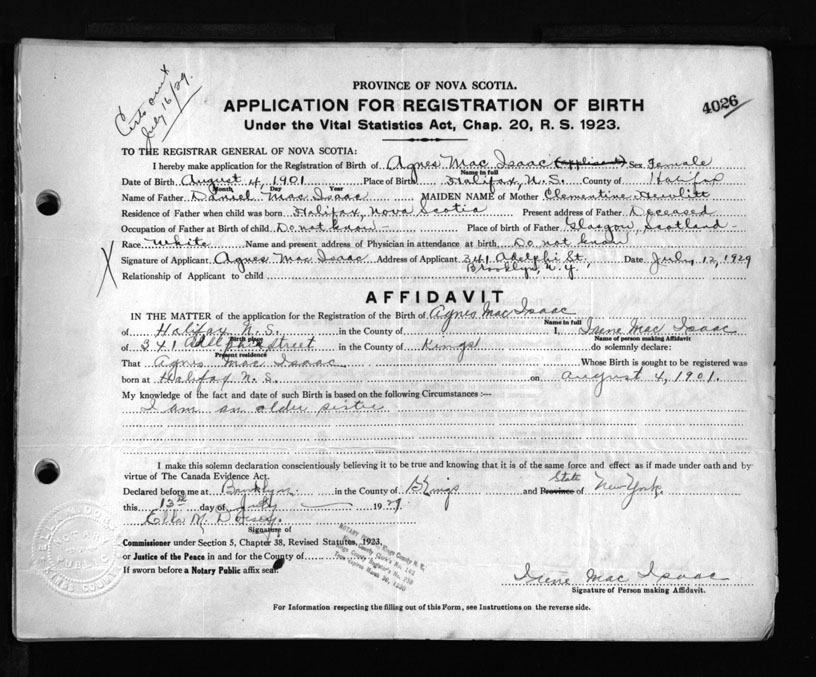 Certs out
July 16/29.
PROVINCE OF NOVA SCOTIA.
4026
APPLICATION FOR REGISTRATION OF BIRTH
Under the Vital Statistics Act, Chap. 20, R. S. 1923.
TO THE REGISTRAR GENERAL OF NOVA SCOTIA:
I hereby make application for the Registration of Birth of Agnes Mac Isaac (applicant) Sex Female
Name in full
Date of Birth August 4, 1901 Place of Birth Halifax, N.S. County of Halifax
Month Day Year
Name of Father Daniel Mac Isaac MAIDEN NAME of Mother Clementine Hewlitt
Residence of Father when child was born Halifax, Nova Scotia Present address of Father Deceased
Occupation of Father at Birth of child. Do not know Place of birth of Father Glasgow, Scotland
Race White Name and present address of Physician in attendance at birth. Do not know
X Signature of Applicant Agnes Mac Isaac Address of Applicant 341 Adelphi St., Date July 12, 1929
Brooklyn, N.Y.
Relationship of Applicant to child
AFFIDAVIT
IN THE MATTER of the application for the Registration of the Birth of Agnes Mac Isaac
Name in full
of Halifax N.S. in the County of I, Irene Mac Isaac
Birth place Name of person making Affidavit
of 341 Adelphi Street in the County of Kings do solemnly declare:
Present residence
That Agnes Mac Isaac Whose Birth is sought to be registered was
born at Halifax N.S. on August 4, 1901.
My knowledge of the fact and date of such Birth is based on the following Circumstances :—
I am an older sister
I make this solemn declaration conscientiously believing it to be true and knowing that it is of the same force and effect as if made under oath and by
virtue of The Canada Evidence Act.
State
Declared before me at Brooklyn in the County of Kings and Province of New York.
this 13th day of July 1929
Ella M. Dorsey
Signature of
Commissioner under Section 5, Chapter 38, Revised Statutes, 1923,
or Justice of the Peace in and for the County of
If sworn before a Notary Public affix seal
NOTARY Kings County N. Y.
Irene Mac Isaac
Signature of Person making Affidavit.
For Information respecting the filling out of this Form, see Instructions on the reverse side.